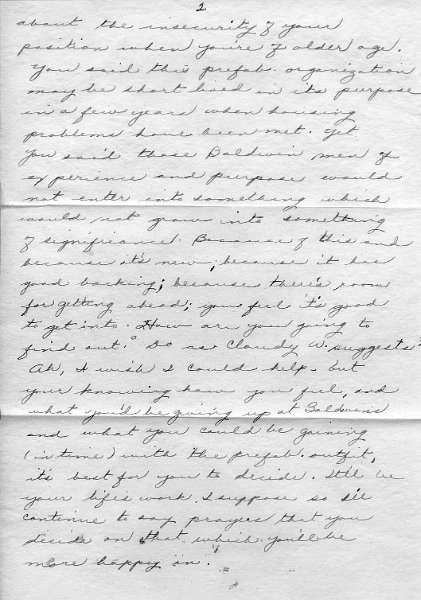 2
about the insecurity of your
position when you're of older age.
You said this prefab. organization
may be short lived in its purpose
in a few years when housing
problems have been met. Yet
you said those Baldwin men of
experience and purpose would
not enter into something which
would not grow into something
of significance. Because of this and
because it's new; because it has
good backing; because there's room
for getting ahead; you feel it's good
to get into. How are you going to
find out? Do as Claudy W. suggests?
Ah, I wish I could help. But
your knowing how you feel, and
what you'd be giving up at Baldwins
and what you could be gaining
(in time) with the prefab. outfit,
it's best for you to decide. It'll be
your life's work I suppose so I'll
continue to say prayers that you
decide on that which you'll be
more happy in.